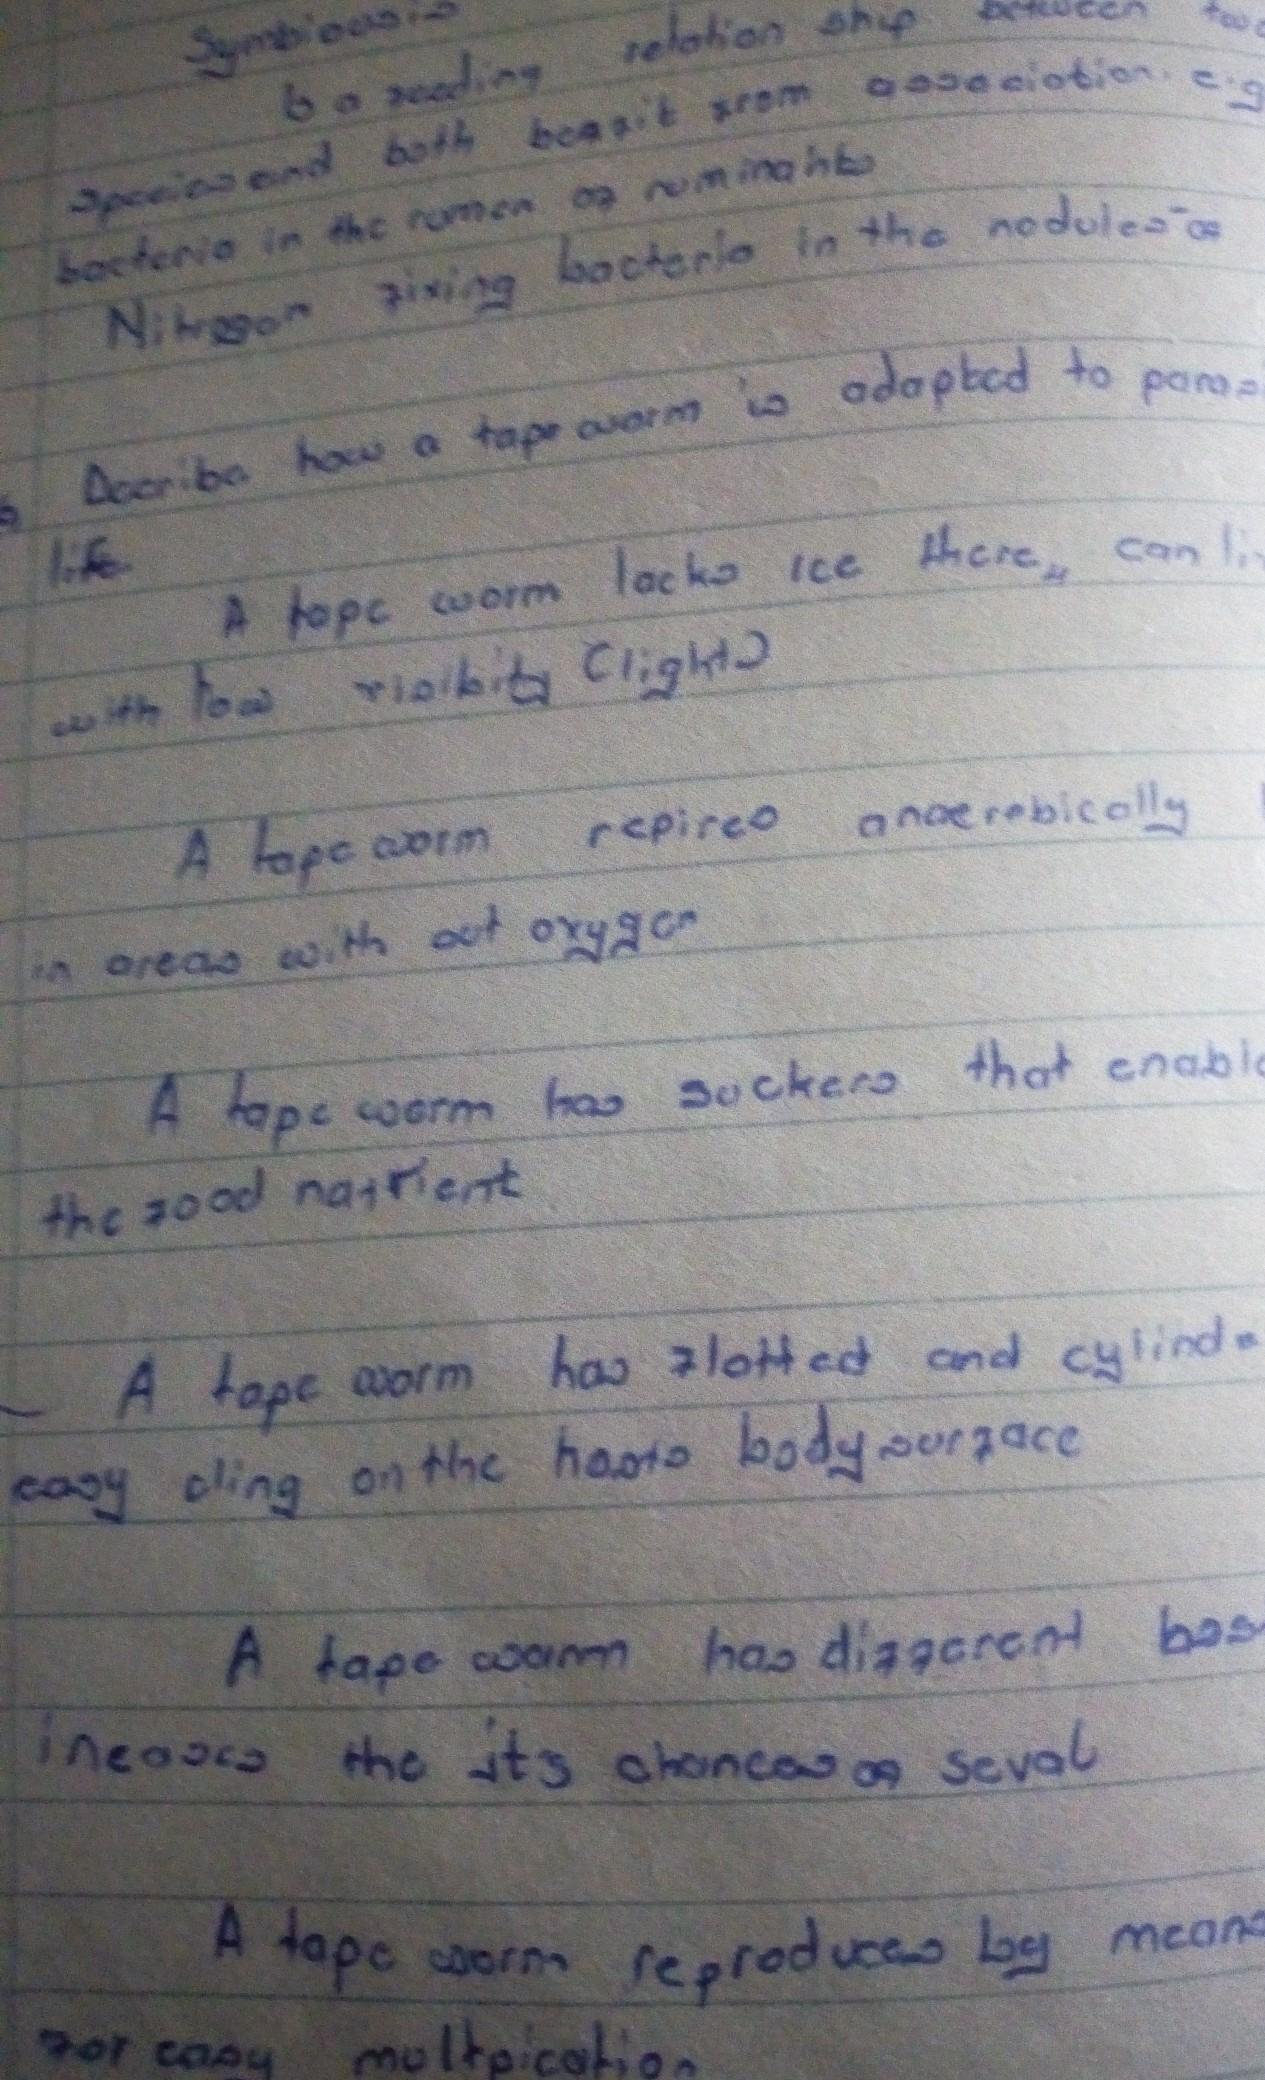 Symbiosis
is a feeding relation ship between two
species and both benefit from association. e.g
bacteria in the rumen of ruminants
Nitrogen fixing bacteria in the nodules of
Describe how a tape worm is adapted to paras
life
A tape worm lacks ice there,, can li
with low visibity (light)
A tape worm repires anaerobically
in areas with out oxygen
A tape worm has suckers that enable
the food natrient
A tape worm has flatted and cylinde
easy cling on the hosts body surface
A tape worm has different
incases the its chances of seval
A tape worm reproduces by means
for easy multpication